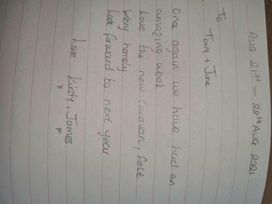 Aug 21st - 28th Aug 2021
To Tony + June
Once again we have had an
amazing week
Love the new caravan, felt
very homely
look forward to next year
Love Kirsty + James
x x